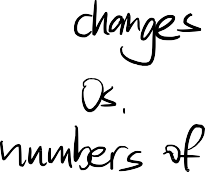 changes
Os.
numbers of